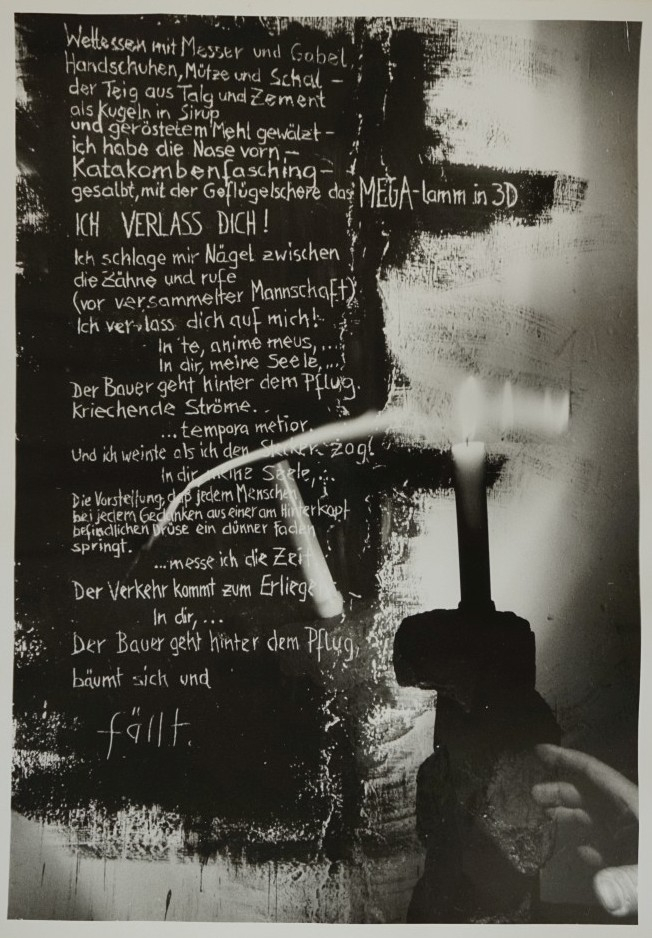 Wettessen mit Messer und Gabel,
Handschuhen, Mütze und Schal –
der Teig aus Talg und Zement
als Kugeln in Sirup
und geröstetem Mehl gewälzt –
ich habe die Nase vorn –
Katakombenfasching –
gesalbt, mit der Geflügelschere das MEGA-lamm in 3D
ICH VERLASS DICH!
Ich schlage mir Nägel zwischen
die Zähne und rufe
(vor versammelter Mannschaft)
Ich ver-lass dich auf mich!
In te, anime meus,...
In dir, meine Seele,...
Der Bauer geht hinter dem Pflug.
kriechende Ströme..
...tempora metior.
Und ich weinte als ich den Stecker zog!
In dir, meine Seele,...
Die Vorstellung, daß jedem Menschen
bei jedem Gedanken aus einer am Hinterkopf
befindlichen Drüse ein dünner Faden
springt.
...messe ich die Zeit
Der Verkehr kommt zum Erliege
In dir,...
Der Bauer geht hinter dem Pflug,
bäumt sich und
fällt.